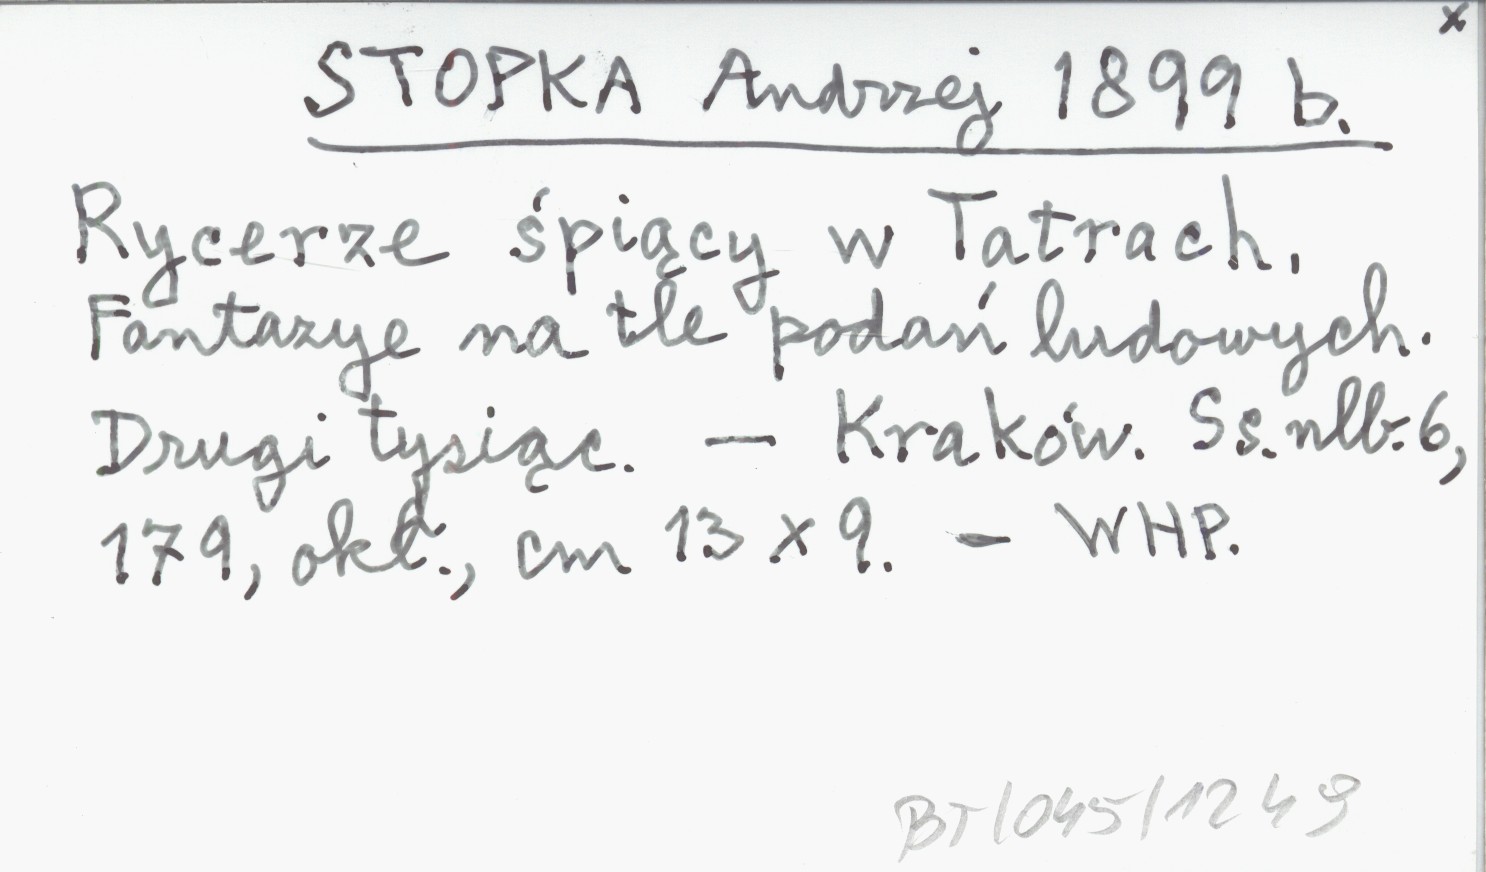 x
STOPKA Andrzej 1899 b.
Rycerze śpiący w Tatrach.
Fantazye na tle podań ludowych.
Drugi tysiąc. — Kraków. Ss. nlb. 6,
179, okł., cm 13 x 9. — WHP.
BT/045/1249